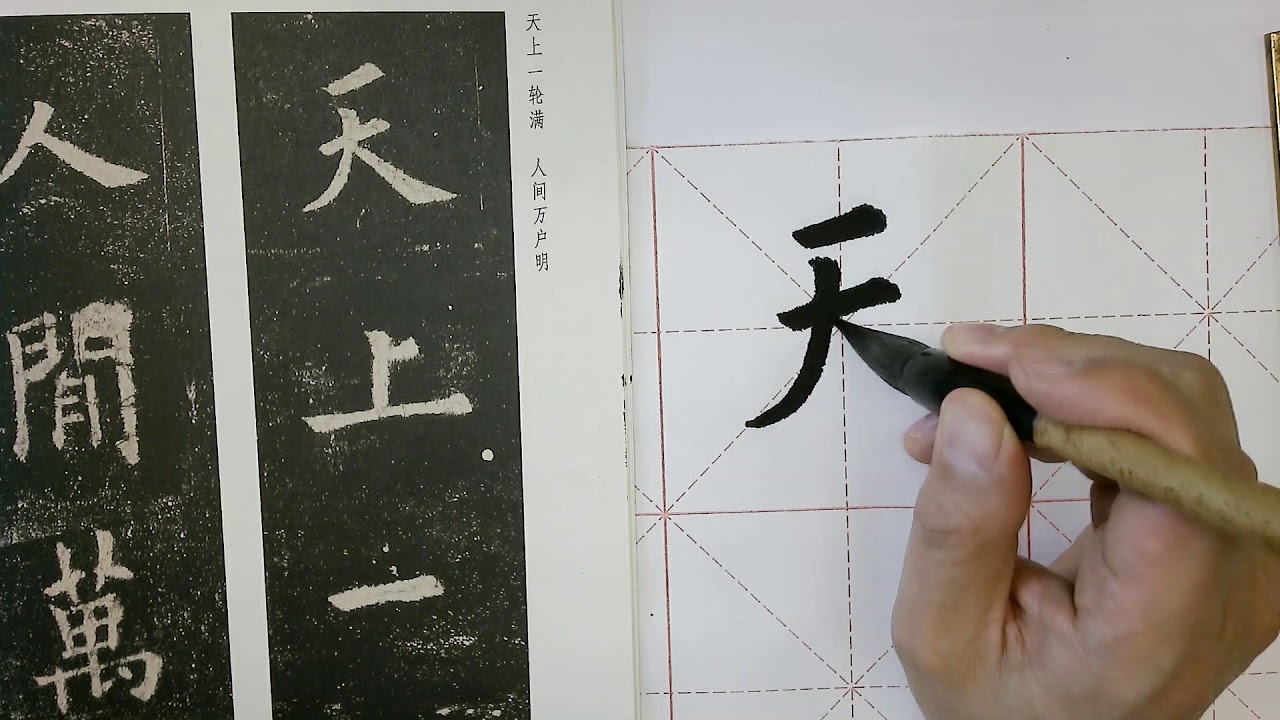 天上一轮满 人间万户明
天上一
人間萬
天